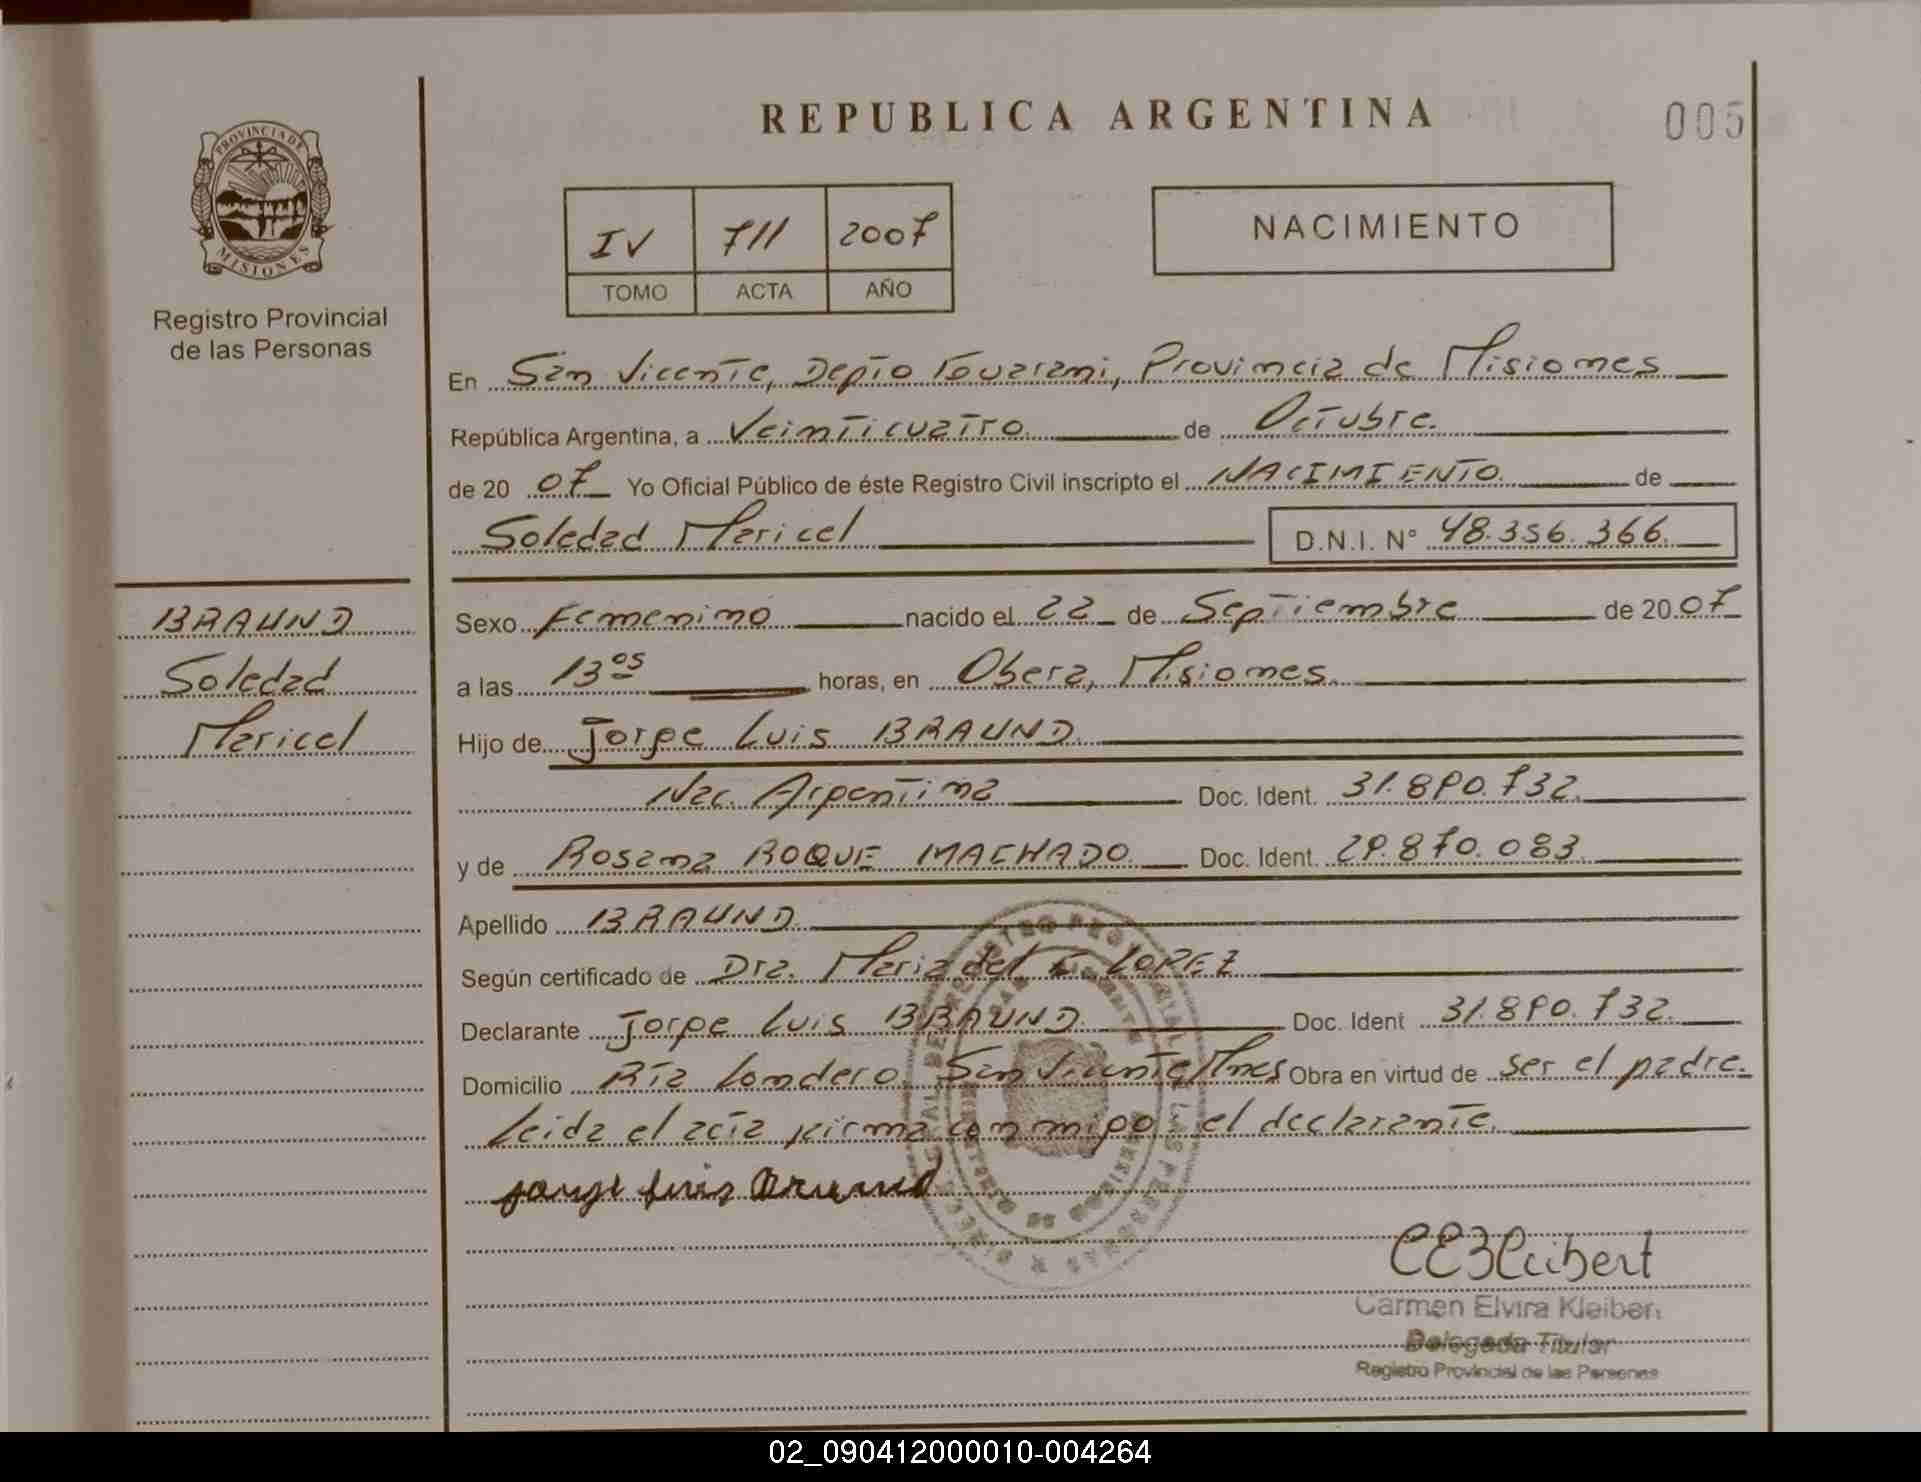 REPUBLICA ARGENTINA
005
PROVINCIA DE
MISIONES
Registro Provincial
de las Personas
IV 711 2007
TOMO ACTA AÑO
NACIMIENTO
En San Vicente, Depto Guarani, Provincia de Misiones
República Argentina, a Veinticuatro de Octubre.
de 20 07 Yo Oficial Público de éste Registro Civil inscripto el NACIMIENTO. de
Soledad Maricel D.N.I. N° 48.356.366.
BRAUND
Soledad
Maricel
Sexo Femenino nacido el 22 de Septiembre de 20 07
a las 13 os horas, en Obera, Misiones.
Hijo de Jorge Luis BRAUND.
Nac. Argentina Doc. Ident. 31.890.732.
y de Rosana ROQUE MACHADO. Doc. Ident. 29.870.083
Apellido BRAUND.
Según certificado de Dra. Maria del C. LOPEZ
Declarante Jorge Luis BRAUND. Doc. Ident 31.890.732.
Domicilio Rta Londero, San Vicente Mnes Obra en virtud de ser el padre.
Leida el acta firma conmigo el declarante.
Jorge Luis Braund
CEKleibert
Carmen Elvira Kleibert
Delegada Titular
Registro Provincial de las Personas
02_090412000010-004264